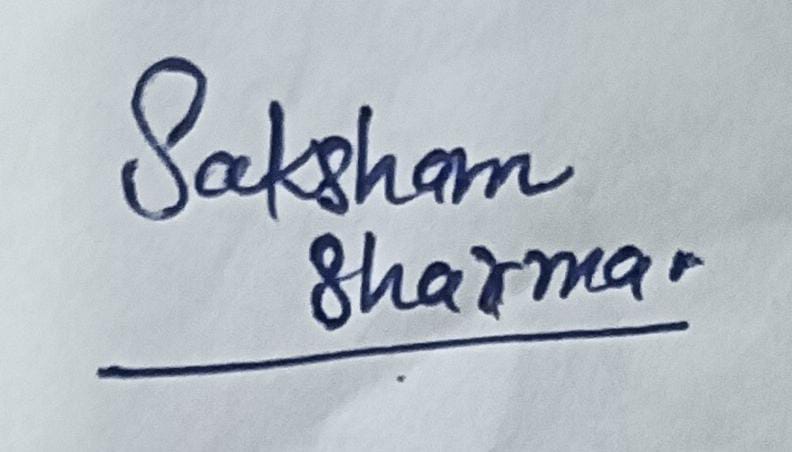 Saksham
Sharma.